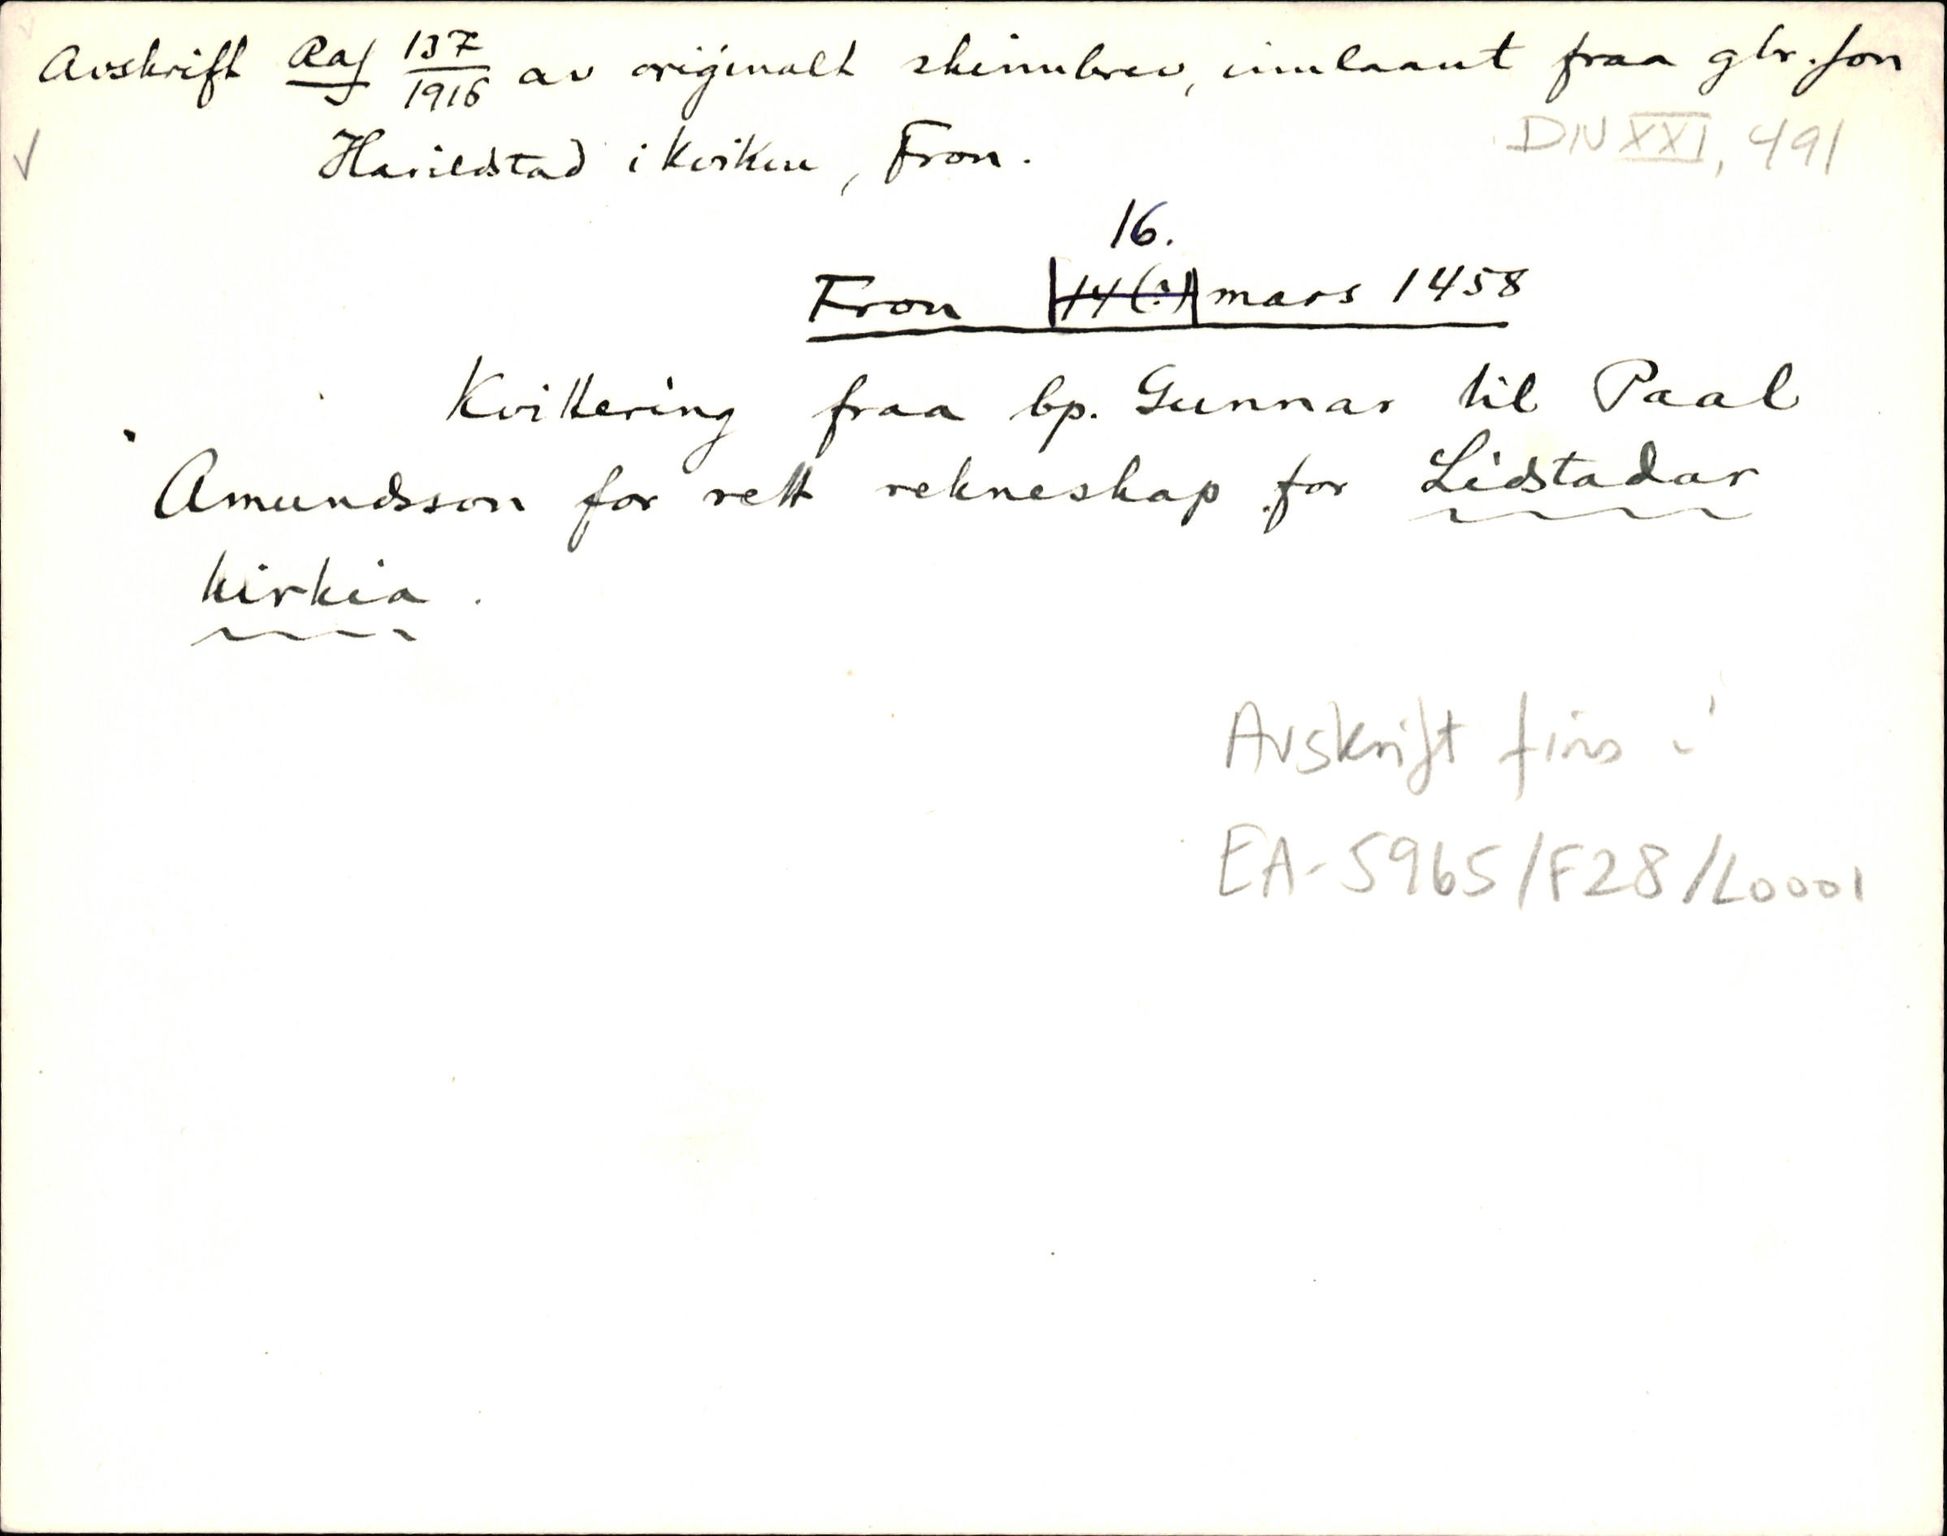 Avskrift Raj 137/1916 av originalt skinnbrev, innlaant fraa gbr. Jon
Harildstad i Kvikne, Fron.
DN XXI, 491
16.
Fron 14(?) mars 1458
Kvittering fraa bp. Gunnar til Paal
Amundsson for rett rekneskap for Lidstadar
kirkia.
Avskrift fins i
EA-5965/F28/L0001